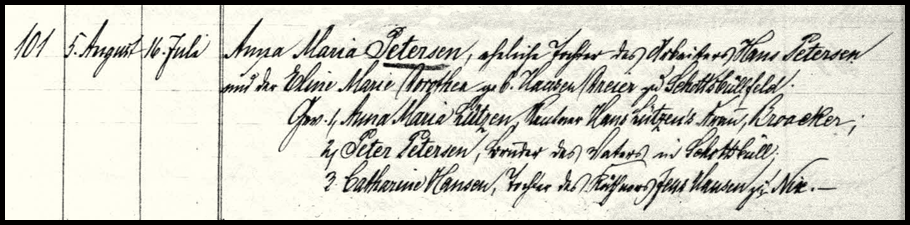 101 5. August 16. Juli Anna Maria Petersen, eheliche Tochter des Arbeiters Hans Petersen
und der Eline Marie Dorothea geb. Hansen Meier zu Schottsbüllfeld.
Gev. 1, Anna Maria Lützen, Rentner Hans Lützen's Frau, Broacker;
2, Peter Petersen, Bruder des Vaters in Schottsbüll;
3. Catharine Hansen, Tochter des Käthners Jens Hansen zu